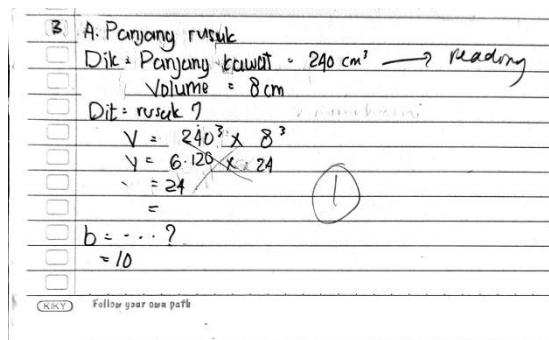 3 A. Panjang rusuk
Dik : Panjang kawat = 240 cm³ → reading
Volume = 8 cm
Dit : rusuk ?
V = 240³ x 8³
V = 6.120 x 24
= 24
=
1
b = .... ?
= 10
KIKY Follow your own path